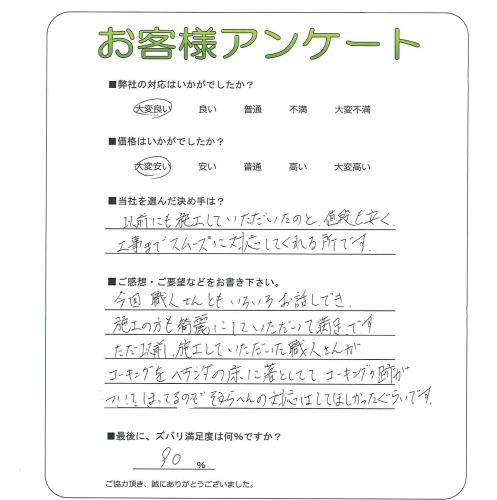 お客様アンケート
■弊社の対応はいかがでしたか?
大変良い 良い 普通 不満 大変不満
■価格はいかがでしたか?
大変安い 安い 普通 高い 大変高い
■当社を選んだ決め手は?
以前にも施工していただいたのと、値段も安く、
工事までスムーズに対応してくれる所です。
■ご感想・ご要望などをお書き下さい。
今回 職人さんともいろいろお話しでき、
施工の方も綺麗にしていただいて満足です。
ただ以前、施工していただいた職人さんが
コーキングをベランダの床に落としてて コーキングの跡が
ついてしまってるので そこらへんの対応はしてほしかったぐらいです。
■最後に、ズバリ満足度は何%ですか?
90 %
ご協力頂き、誠にありがとうございました。